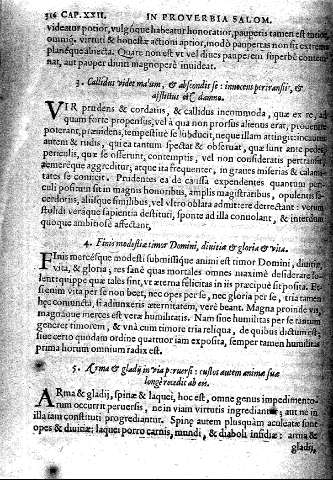 316 CAP. XXII. IN PROVERBIA SALOM.
videatur potior, vulgóque habeatur honoratior, pauperis tamen est
omnis virtuti & honestæ actioni aptior, modò paupertas non sit extrema
planéque abiecta. Quare non est vt vel diues pauperem superbè contem-
nat, aut pauper diuiti magnoperè inuideat.
3. Callidus videt malum, & abscondit se: innocens pertransiit, &
afflictus est damno.
VIR prudens & cordatus, & callidus incommoda, quæ ex re,
quam fortè propensus, vel à qua non prorsus alienus erat, prouenire
poterant, præuidens, tempestiuè se subducit, neque illam attingit: incautus
autem & rudis, qui ea tantum spectat & obseruat, quæ sunt ante pedes,
periculis, quæ se offerunt, contemptis, vel non consideratis pertransit,
temerèque aggreditur; atque ita frequenter, in graues miserias & calami-
tates se conijcit. Prudentes ea de causa expendentes quantum peri-
culi possint sit in magnis honoribus, amplis magistratibus, opulentis sa-
cerdotiis, aliisque similibus, vel vltro oblata admittere detrectant: verùm
stolidi veráque sapientia destituti, sponte ad illa conuolant, & interdum
quoque ambitiosè affectant.
4. Finis modestiæ timor Domini, diuitiæ & gloria & vita.
Finis mercésque modesti submissique animi est timor Domini, diuitiæ,
vita, & gloria; res sanè quas mortales omnes maximè desiderare so-
lent: quippe quæ tales sint, vt æterna felicitas in iis præcipuè sit posita. Et-
sienim vita per se non beet, nec opes per se, nec gloria per se, tria tamen
hæc coniuncta, si adiunxeris æternitatem, verè beant. Magna proinde vis,
magnáque merces est veræ humilitatis. Nam siue humilitas per se tantùm
generet timorem, & vnà cum timore tria reliqua, de quibus dictum est;
siue certo quodam ordine quattuor iam exposita, semper tamen humilitas
prima horum omnium radix est.
5. Arma & gladij in via peruersi: custos autem animæ suæ
longè recedit ab eis.
ARma & gladij, spinæ & laquei, hoc est, omne genus impedimento-
rum occurrit peruersis, ne in viam virtutis ingrediantur, aut ne in
illa iam constituti progrediantur. Spinæ autem plusquàm aculeatæ sunt
opes & diuitiæ; laquei porrò carnis, mundi, & diaboli insidiæ: arma &
gladij,